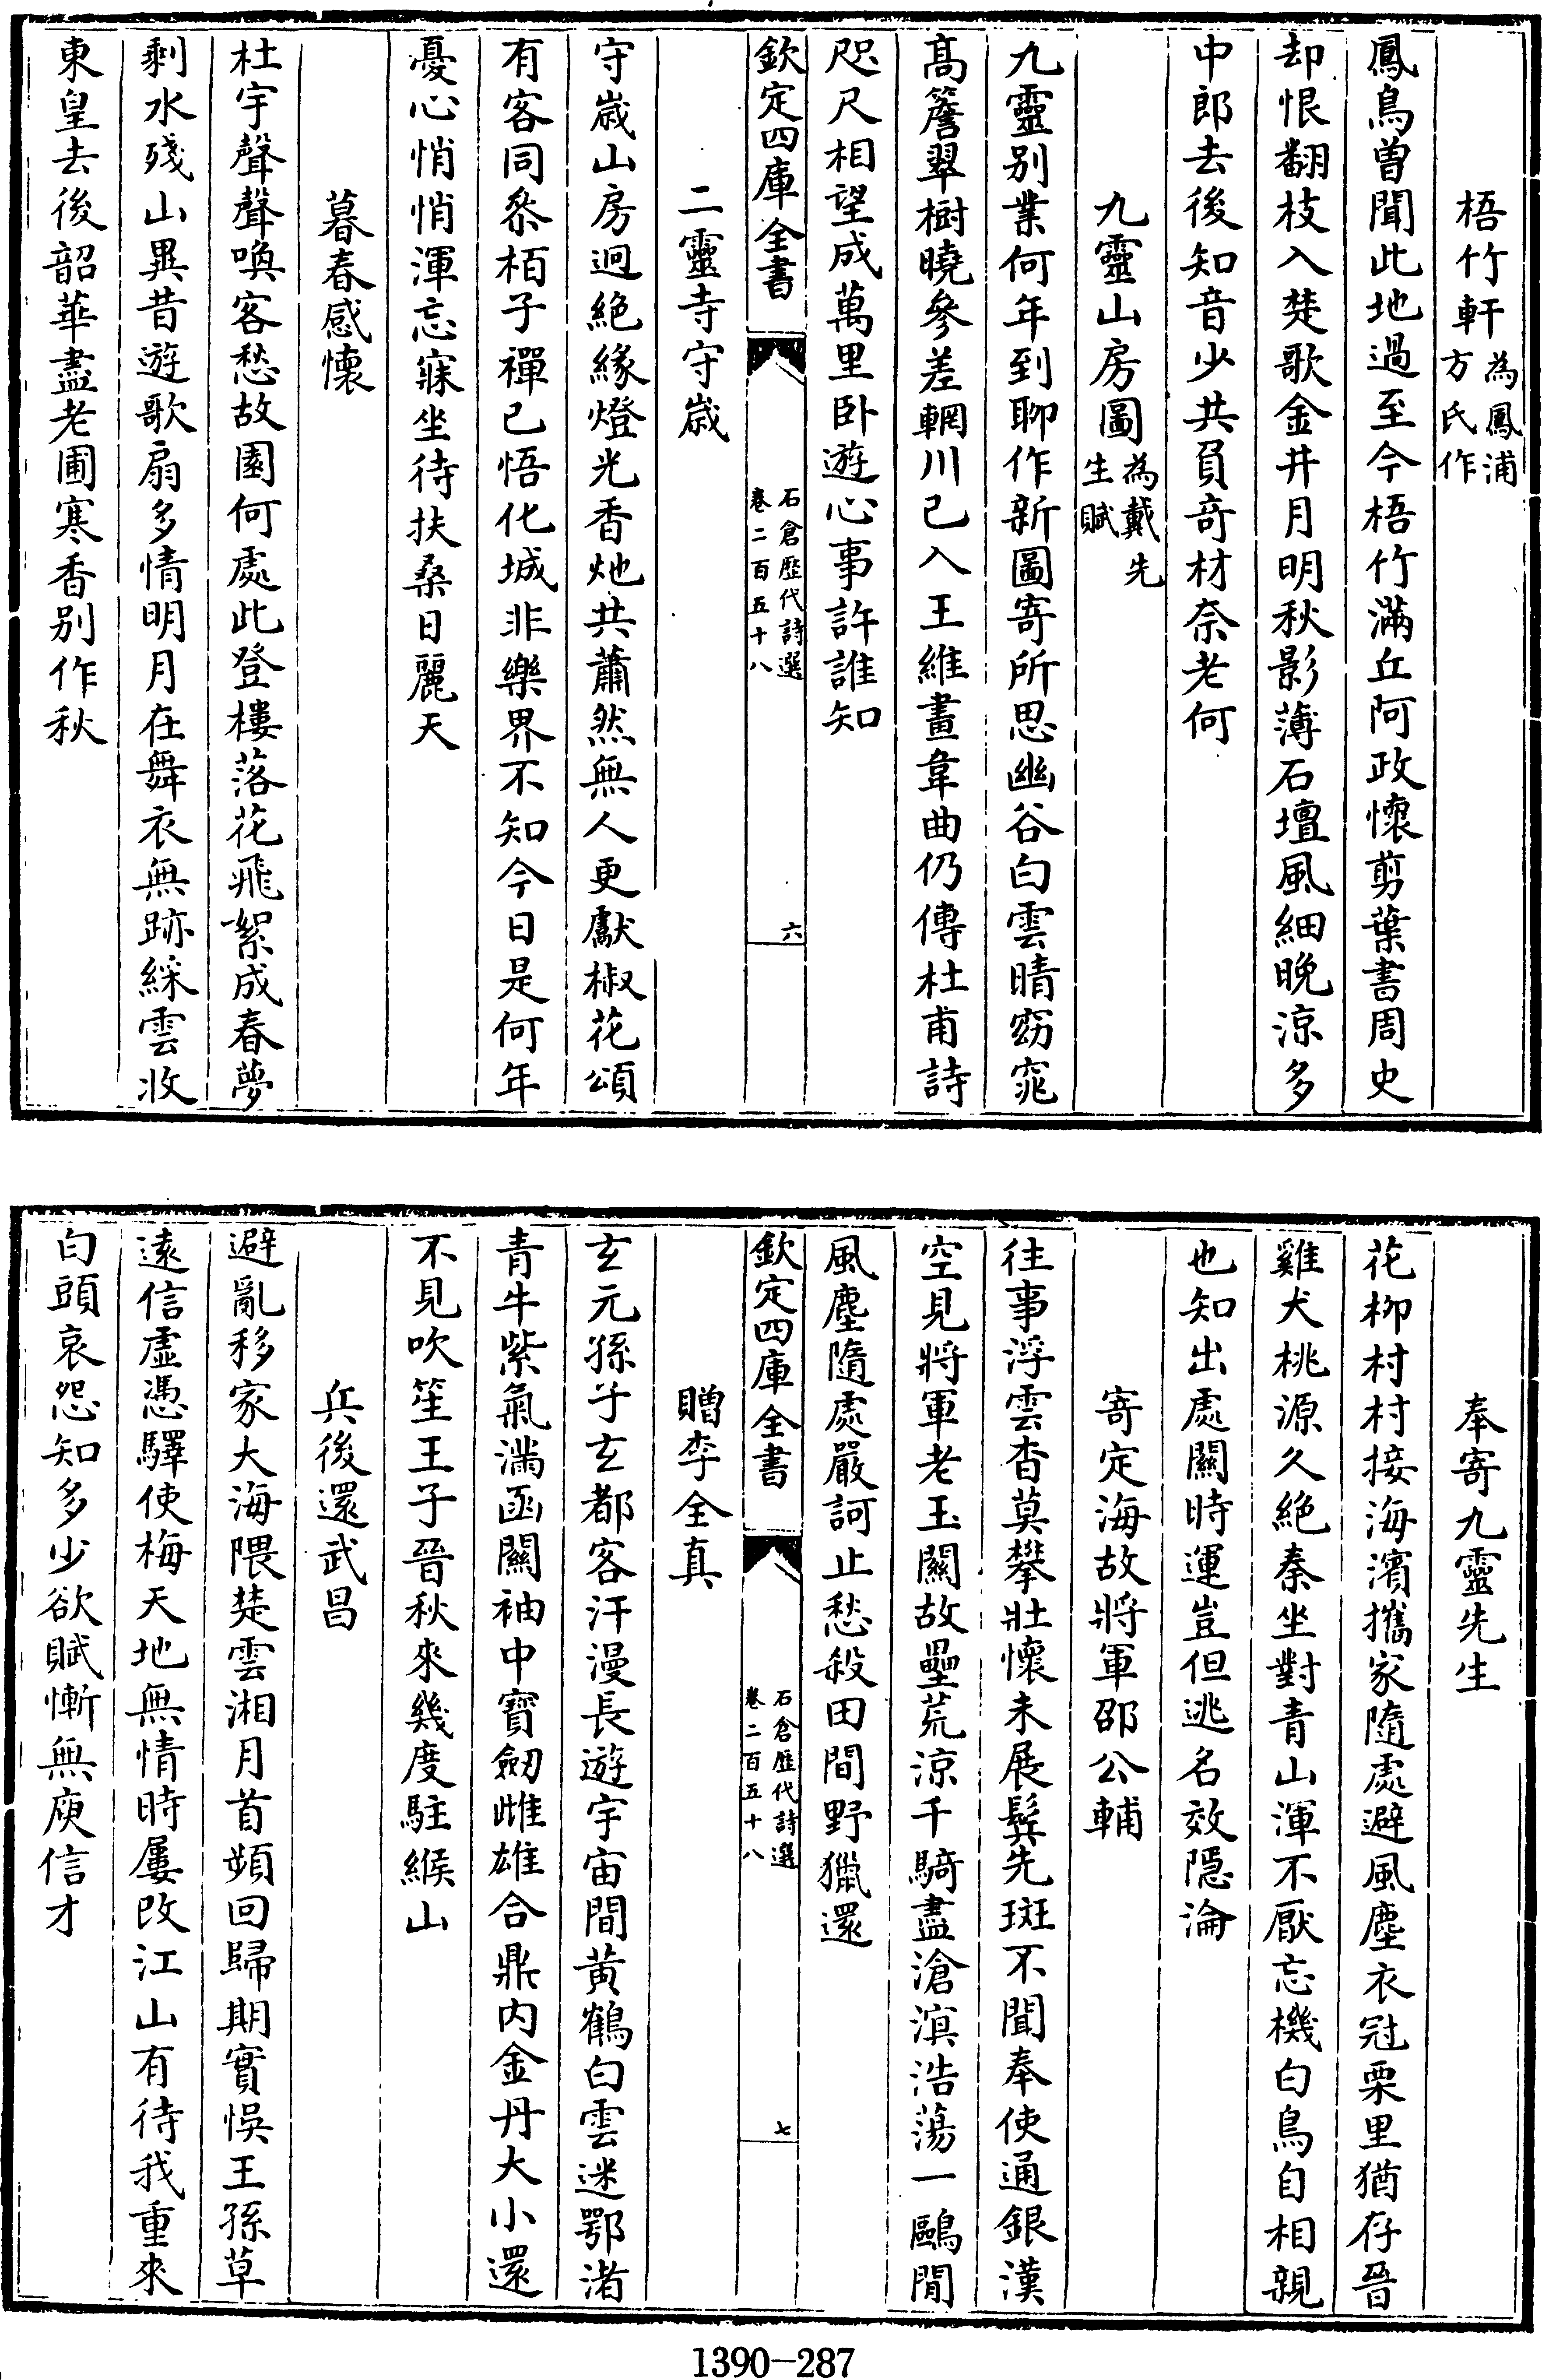 梧竹軒為鳳浦方氏作
鳳鳥曽聞此地過至今梧竹滿丘阿政懷剪葉書周史
却恨翻枝入楚歌金井月明秋影薄石壇風細晚涼多
中郎去後知音少共負奇材奈老何
九靈山房圖為戴先生賦
九靈别業何年到聊作新圖寄所思幽谷白雲晴窈窕
髙簷翠樹曉參差輞川已入王維畫韋曲仍傳杜甫詩
咫尺相望成萬里卧遊心事許誰知
欽定四庫全書
石倉歷代詩選
卷二百五十八
六
二靈寺守歲
守歲山房迥絶緣燈光香灺共蕭然無人更獻椒花頌
有客同叅栢子禪已悟化城非樂界不知今日是何年
憂心悄悄渾忘寐坐待扶桑日麗天
暮春感懷
杜宇聲聲喚客愁故園何處此登樓落花飛絮成春夢
剩水殘山異昔遊歌扇多情明月在舞衣無跡綵雲收
東皇去後韶華盡老圃寒香别作秋
奉寄九靈先生
花柳村村接海濱攜家隨處避風塵衣冠栗里猶存晉
雞犬桃源久絶秦坐對青山渾不厭忘機白鳥自相親
也知出處關時運豈但逃名效隱淪
寄定海故將軍邵公輔
往事浮雲杳莫攀壯懷未展鬂先斑不聞奉使通銀漢
空見將軍老玉關故壘荒涼千騎盡滄溟浩蕩一鷗閒
風塵隨處嚴訶止愁殺田間野獵還
欽定四庫全書
石倉歷代詩選
卷二百五十八
七
贈李全真
玄元孫子玄都客汗漫長遊宇宙間黄鶴白雲迷鄂渚
青牛紫氣滿函關袖中寶劒雌雄合鼎内金丹大小還
不見吹笙王子晉秋來幾度駐緱山
兵後還武昌
避亂移家大海隈楚雲湘月首頻回歸期實悞王孫草
遠信虚憑驛使梅天地無情時屢改江山有待我重來
白頭哀怨知多少欲賦慚無庾信才
1390-287